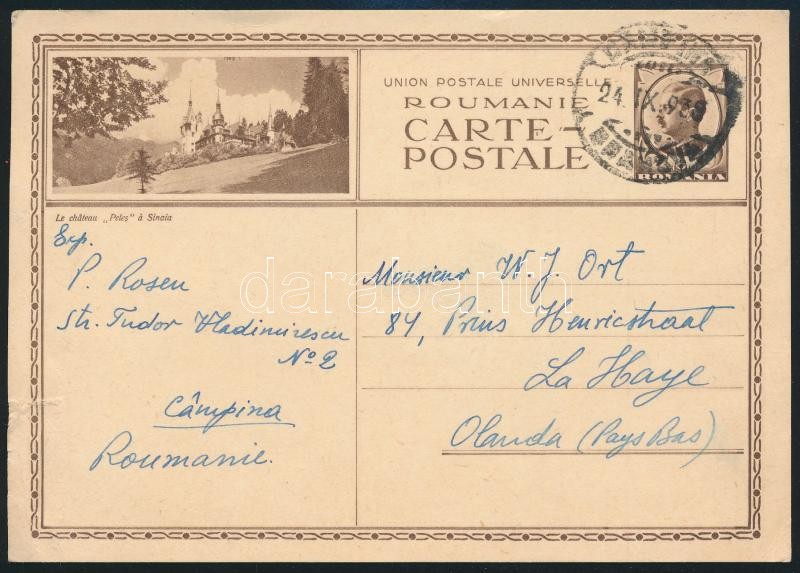 UNION POSTALE UNIVERSELLE
ROUMANIE
CARTE-
POSTALE
24.IX.938
ROMANIA
Le château „Peleș” à Sinaia
Exp.
P. Rosen
Str. Tudor Vladimirescu
No 2
Câmpina
Roumanie.
Monsieur W. J. Ort
84, Prins Henricstraat
La Haye
Olanda (Pays Bas)
darabanth